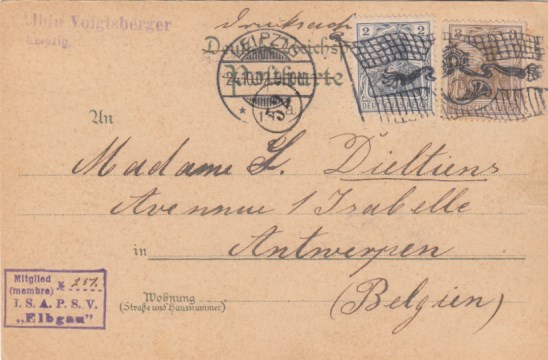 Albin Voigtsberger
Leipzig.
Drucksache
Deutsche Reichspost
Postkarte
LEIPZIG
2 2
2 2
An
Madame L. Dieltiens
Avennue 1 Isabelle
in Antwerpen
(Belgien)
Wohnung
(Straße und Hausnummer)
Mitglied
(membre) № 251.
I. S. A. P. S. V.
„Elbgau"